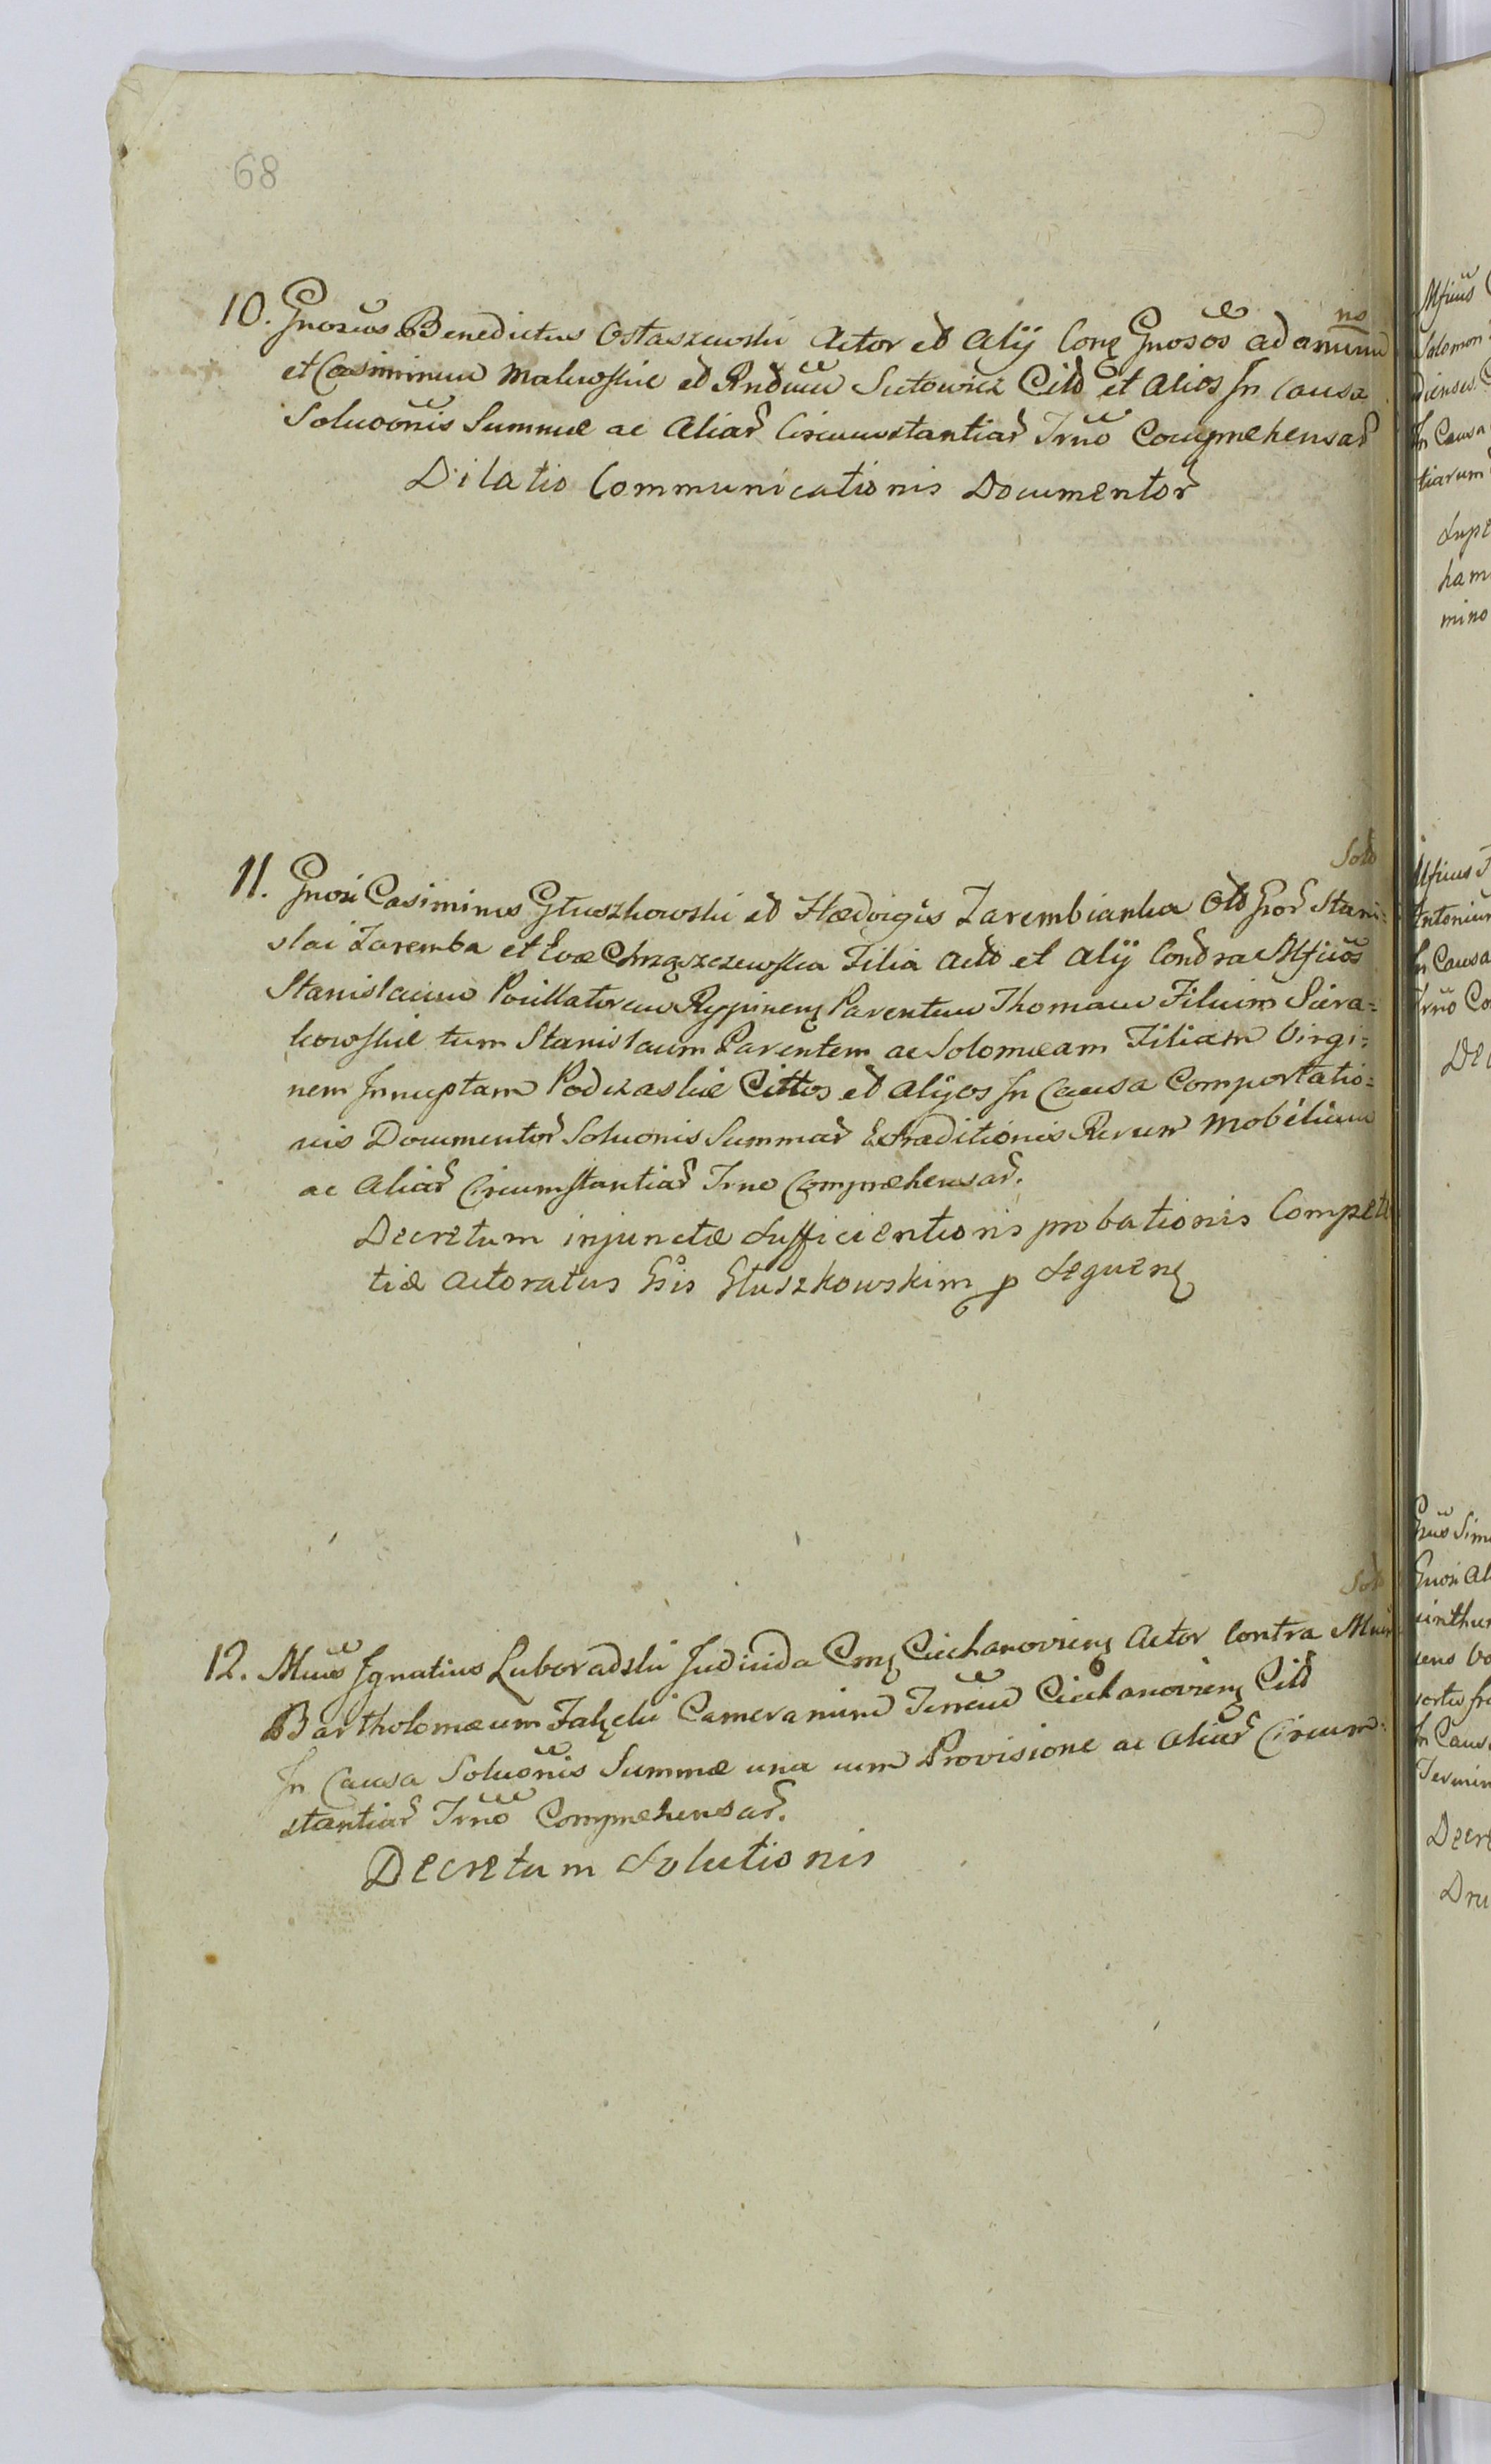 68
ns
10. Gnosus Benedictus Ostaszewski Actor et Alij Conq Gnosos Adamum
et Casimirum Malewskie et Rndum Sutowicz Citt et Alios In Causa
Soluõnis Summæ ac Aliar Circumstantiar Trno Comprehensar
Dilatio Communicationis Documentor
Solt
11. Gnosi Casimirus Głuszkowski et Hædvigis Zarembianka Olt Gsor Stani=
slai Zaremba et Evæ Chrząszczewska Filia Actt et Alij Contra Mfcos
Stanislaum Pocillatorem Rypinenq Parentem Thomam Filium Siera=
kowskie tum Stanislaum Parentem ac Solomeam Filiam Virgi=
nem Innuptam Podczaskie Cittos et Alijos In Causa Comportatio=
nis Documentor Soluonis Summar Extraditionis Rerum Mobilium
ac Aliar Circumstantiar Trno Comprehensar.
Decretum injunctæ sufficientioris probationis Compete
tiæ Actoratus Gsis Głuszkowskim p sequenq
Solt
12. Mcus Ignatius Luboradzki Judicida Cmq Ciechanovienq Actor Contra Mcum
Bartholomæum Falęcki Camerarium Trrem Ciechanovienq Citt
In Causa Soluõnis Summæ una cum Provisione ac Aliar Circum=
stantiar Trno Comprehensar.
Decretum Solutionis